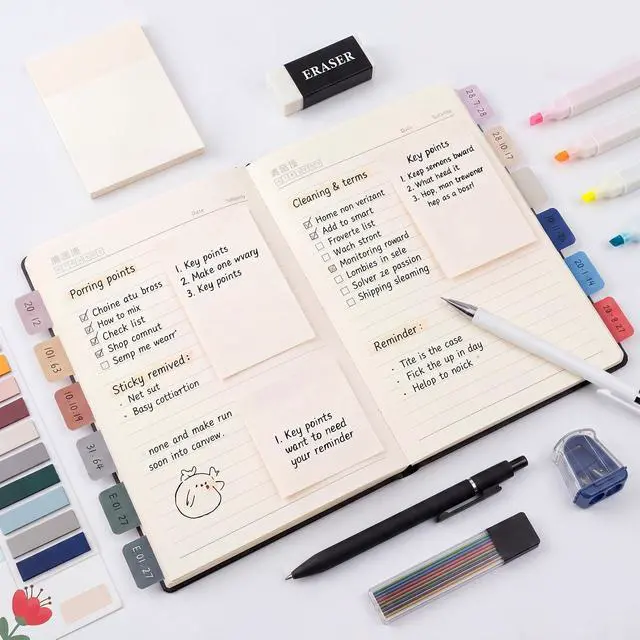 ERASER
Date
Porring points
Choine atu bross
How to mix
Check list
Shop comnut
Semp me wearr'
Sticky remived:
· Net sut
· Basy cottiartion
none and make run
soon into canvew.
1. Key points
2. Make one wvary
3. Key points
1. Key points
want to need
your reminder
Date
Cleaning & terms
Home non verizant
Add to smart
Froverte list
Wach stront
Monitoring roward
Lombies in sele
Solver ze passion
Shipping sleaming
Key points
1. Keep semons bward
2. What heed it
3. Hop, man trewener
hep as a bosr!
Reminder:
· Tite is the case
· Fick the up in day
· Helop to noick
20 12
101 63
10:10:19
31:64
E 01 27
E 01 27
28 7 28
28 10:17
20:1:14
28:9:27